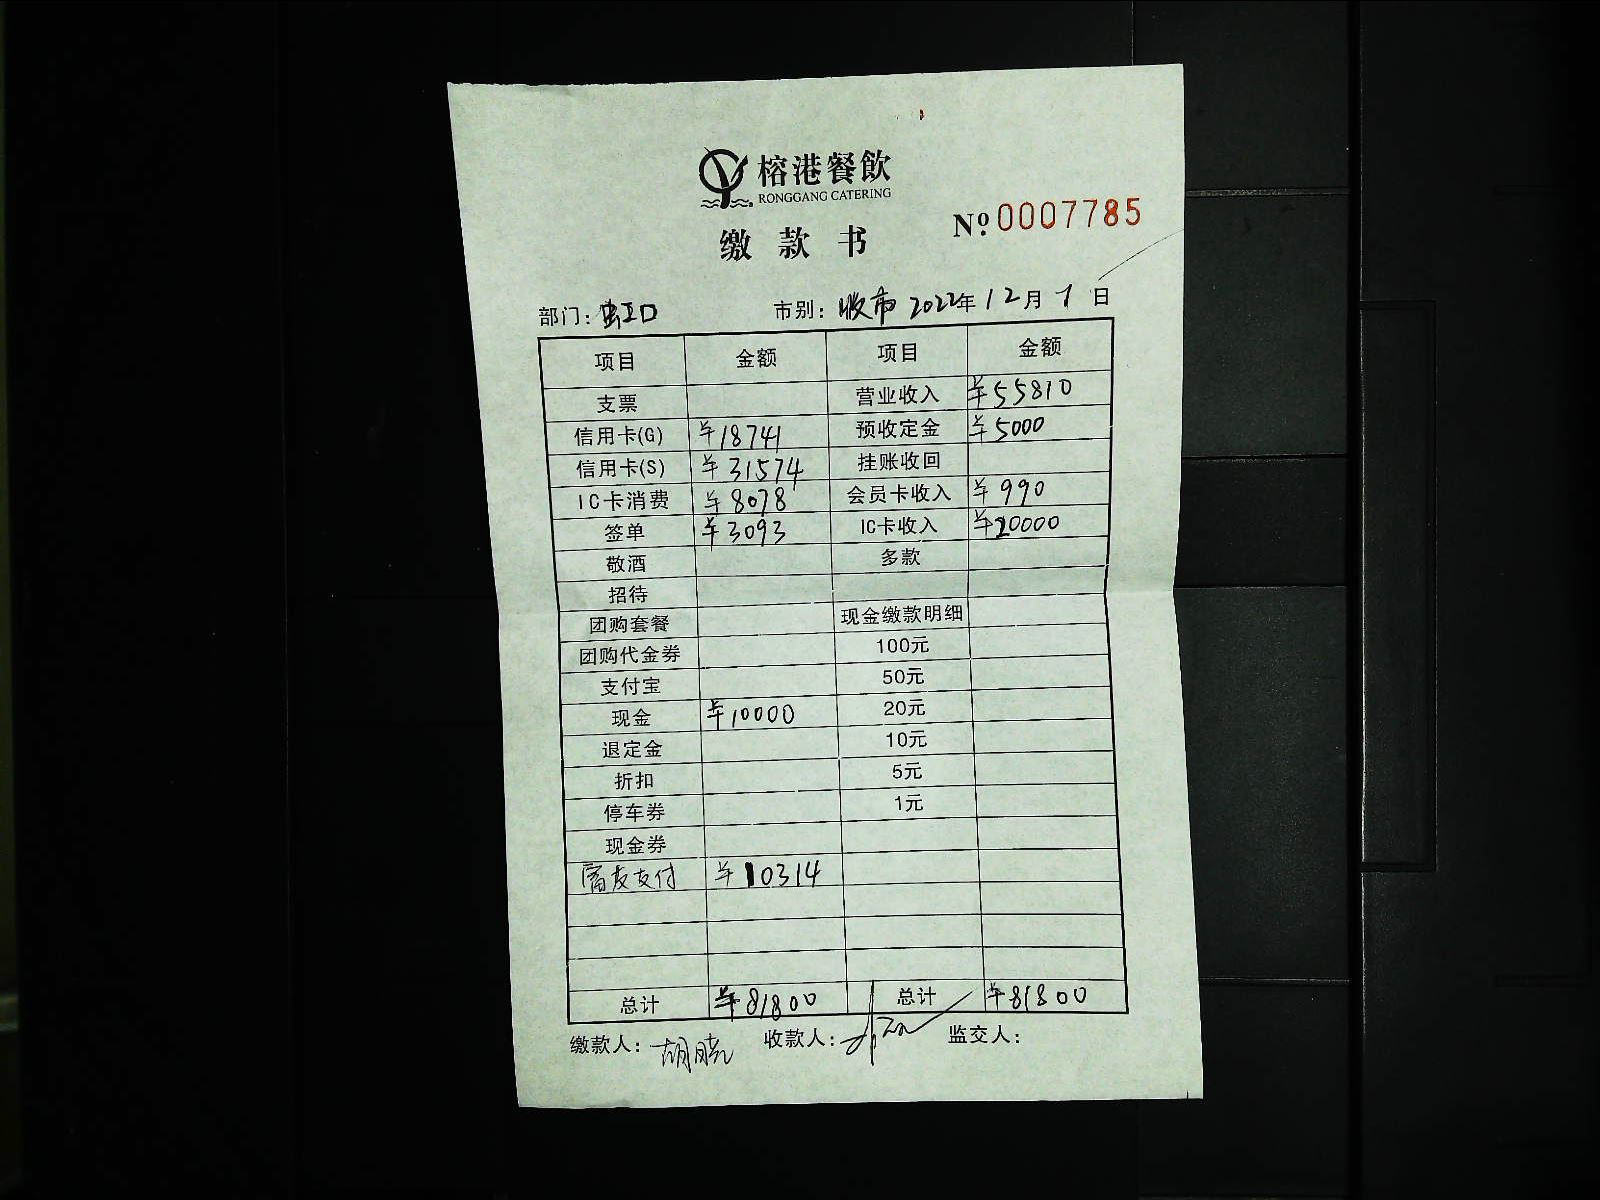 榕港餐飲
RONGGANG CATERING
缴款书
No.0007785
部门：虹口 市别：收市 2022年12月1日
项目 金额 项目 金额
支票 营业收入 ¥55810
信用卡(G) ¥18741 预收定金 ¥5000
信用卡(S) ¥31574 挂账收回
IC卡消费 ¥8078 会员卡收入 ¥990
签单 ¥3093 IC卡收入 ¥20000
敬酒 多款
招待
团购套餐 现金缴款明细
团购代金券 100元
支付宝 50元
现金 ¥10000 20元
退定金 10元
折扣 5元
停车券 1元
现金券
富友支付 ¥10314
总计 ¥81800 总计 ¥81800
缴款人：胡晓 收款人： 监交人：